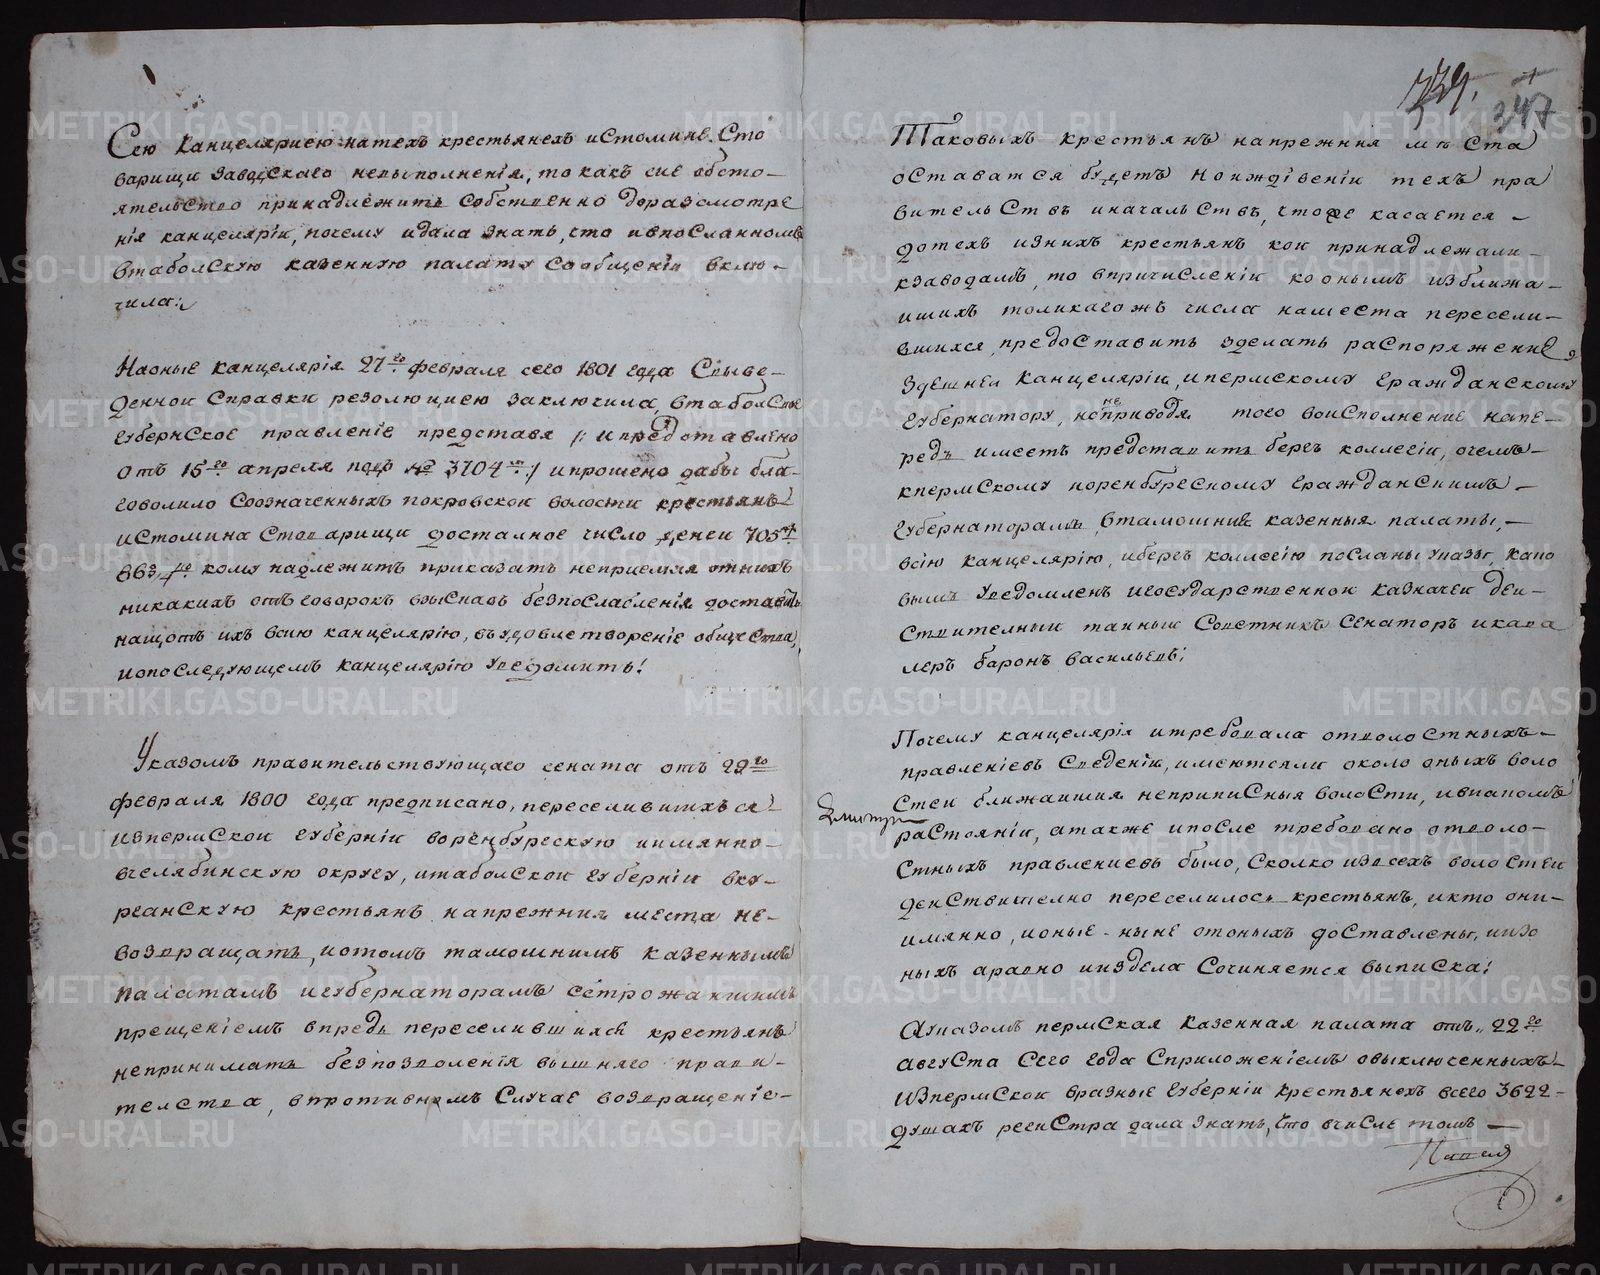 Сею Канцеляриею натехъ крестьянехъ истомине Сто
варищи заводскаго невыполненія, то какъ сие обсто–
ятельство принадлежитъ Собственно доразсмотре
нія канцеляріи, почему идала знать, что ивпосланномъ
втабольскую казенную палату Сообщеніи вклю–
чила:
Наоные канцелярія 27го февраля сего 1801 года Свыве–
денной Справки резолюциею заключила, втабольское
губернское правленіе представя /: и представлено
отъ 15го апреля подъ № 3704м :/ ипрошено дабы бла–
говолило Соозначенныхъ покровской волости крестьянъ
истомина Стоварищи досталное число денегъ 705
663 кому надлежитъ приказать неприемля отнихъ
никакихъ отъговорокъ взыскавъ безпослабленія доставить
нащотъ ихъ всию канцелярію, въ удовлетвореніе общества,
ипоследующемъ канцелярію уведомить!
Указомъ правительствующаго сената отъ 22го
февраля 1800 года предписано, переселившихъся
изпермской губерніи воренбургскую иимянно–
вчелябинскую округу, итабольской губерніи вку–
рганскую крестьянъ напрежния места не–
возвращать, иотомъ тамошнимъ казеннымъ
палатамъ игубернаторамъ сетрожайшимъ
прещеніемъ впредь переселившихся крестьянъ
непринимать безпозволенія вышняго прави–
телства, впротивномъ Случае возвращеніе–
739.
347
Таковыхъ крестьянъ напрежния места
оставатся будетъ наиждівеніи техъ пра
вительствъ иначальствъ, чтоже касается –
дотехъ изнихъ крестьянъ кои принадлежали –
кзаводамъ, то впричисленіи коонымъ изближа–
ишихъ толикагожъ числа наместа пересели–
вшихся, предоставить зделать распоряжение
Здешней Канцеляріи, ипермскому гражданскому
губернатору, но не приводя того воисполнение напе–
редъ имеетъ представить бергъ коллегіи, очемъ–
кпермскому иоренбургскому гражданскимъ –
губернаторамъ, втамошние казенныя палаты, –
всію канцелярію, ибергъ коллегію посланы указы, како
вымъ уведомленъ игосударственной казначей дей–
ствителный тайный Советникъ сенаторъ икава
леръ баронъ васильевъ;
Почему канцелярія итребовала отволостныхъ–
правленіевъ Сведеніи, имеютсяли около оныхъ воло
стей ближайшия неприписныя волости, ивкаломъ
растояніи, атакже ипосле требовано отволо–
стныхъ правлениевъ было, сколко извсехъ волостей
действително переселилось крестьянъ, икто они–
имянно, ионые–ныне отоныхъ доставлены, иизо
ныхъ аравно ииздела Сочиняется выписка:
Ауказомъ пермская Казенная палата отъ 22го
августа Сего года Сприложеніемъ овыключенныхъ–
изпермской вразные губерніи крестьянехъ всего 3622–
душахъ регистра дала знать, что вчисле томъ –